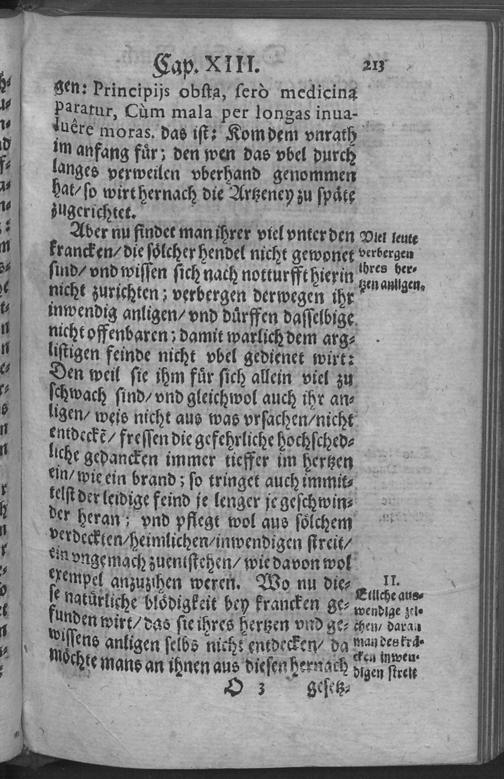 Cap. XIII. 213
gen: Principijs obsta, serò medicina
paratur, Cùm mala per longas inua-
luêre moras. das ist: Kom dem vnrath
im anfang für; den wen das vbel durch
langes verweilen vberhand genommen
hat/ so wirt hernach die Artzeney zu späte
zugerichtet.
Aber nu findet man ihrer viel vnter den
krancken/ die sölcher hendel nicht gewonet
sind/ vnd wissen sich nach notturfft hierin
nicht zurichten; verbergen derwegen ihr
inwendig anligen/ vnd dürffen dasselbige
nicht offenbaren; damit warlich dem arg-
listigen feinde nicht vbel gedienet wirt:
Den weil sie ihm für sich allein viel zu
schwach sind/ vnd gleichwol auch ihr an-
ligen/ weis nicht aus was vrsachen/ nicht
entdeckē/ fressen die gefehrliche hochsched-
liche gedancken immer tieffer im hertzen
ein/ wie ein brand; so tringet auch immit-
telst der leidige feind je lenger je geschwin-
der heran; vnd pflegt wol aus sölchem
verdeckten/ heimlichen/ inwendigen streit/
ein vngemach zuentstehen/ wie davon wol
exempel anzuzihen weren. Wo nu die-
se natürliche blödigkeit bey krancken ge-
funden wirt/ das sie ihres hertzen vnd ge-
wissens anligen selbs nicht entdecken/ da
möchte mans an ihnen aus diesen hernach
O 3 gesetz-
Viel leute
verbergen
ihres her-
tzen anligen.
II.
Etliche aus-
wendige zei-
chen/ daran
man des krā-
cken inwen-
digen streit